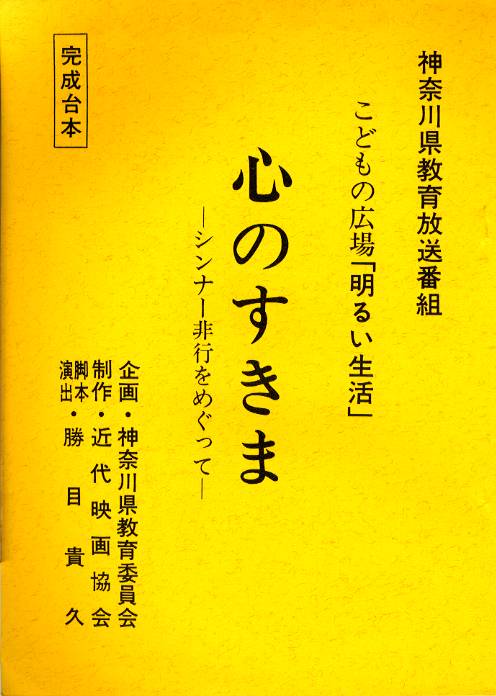 神奈川県教育放送番組
こどもの広場「明るい生活」
心のすきま
―シンナー非行をめぐって―
企画・神奈川県教育委員会
制作・近代映画協会
脚本
演出・勝目貴久
完成台本